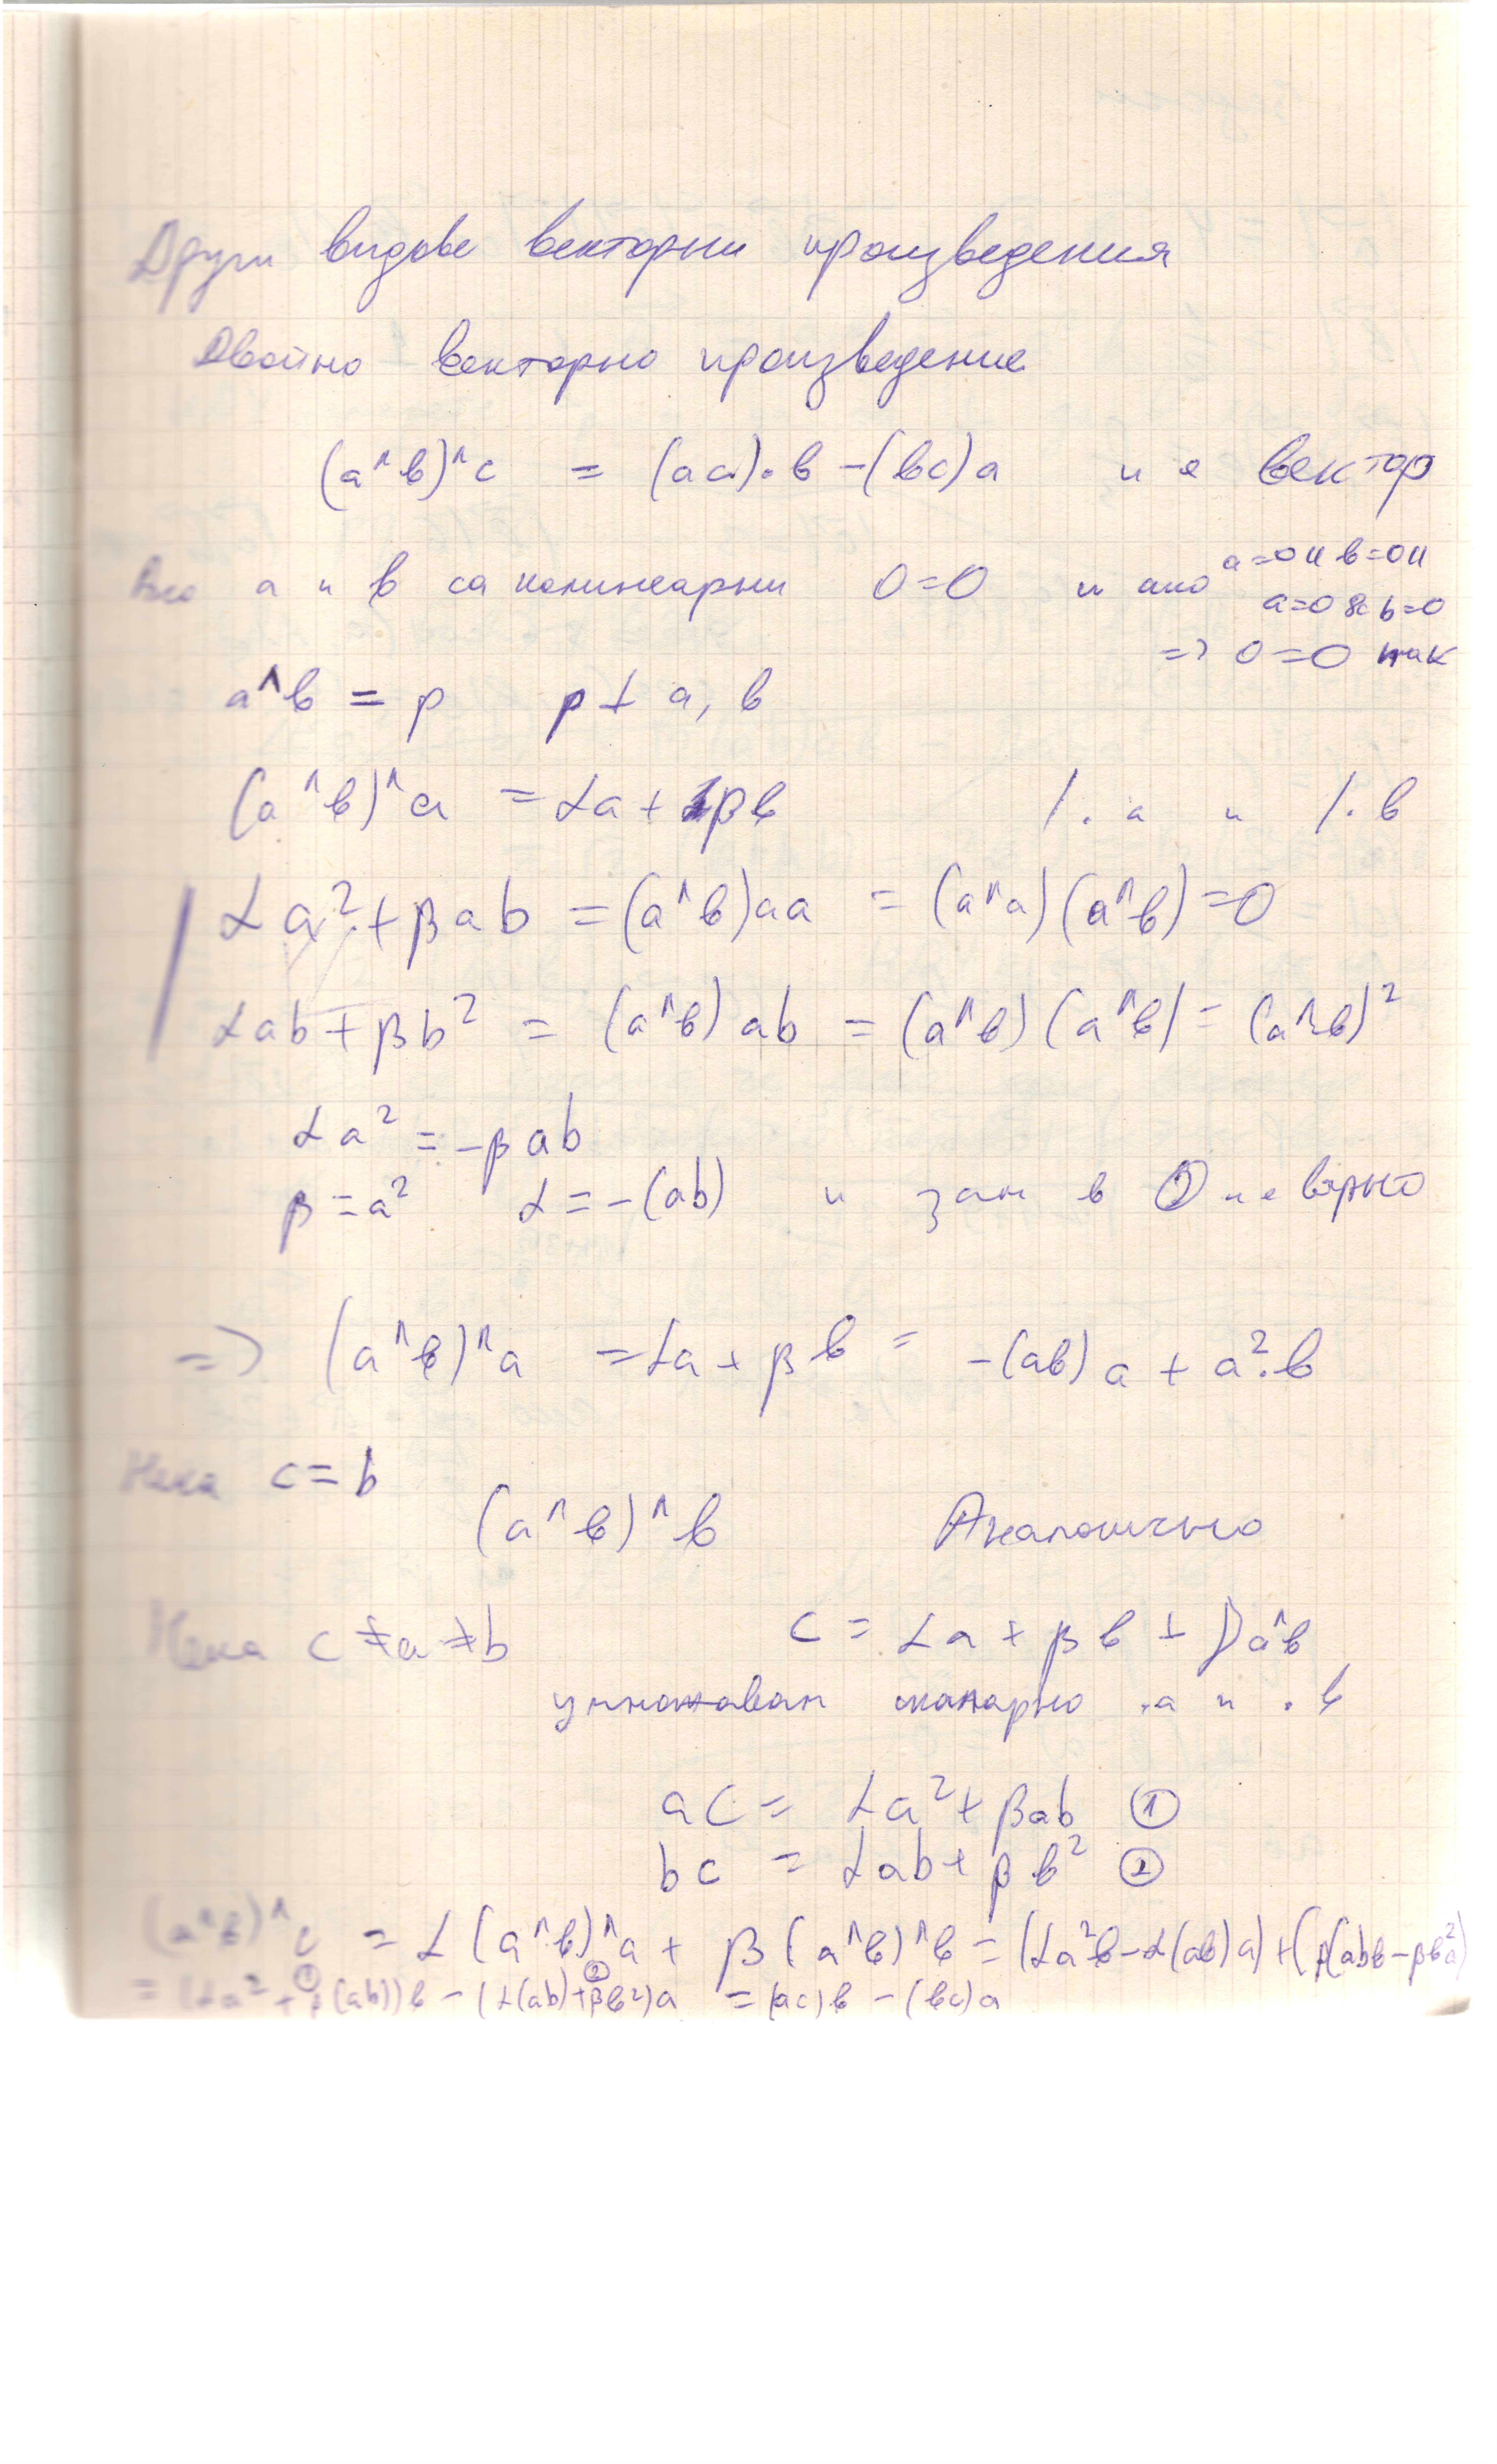 Други видове векторни произведения
Двойно векторно произведение
(a^в)^c = (ac).в - (вc)a и е вектор
Ако a и в са колинеарни 0=0 и ако a=0 и в=0 и
a=0 & b=0
=> 0=0 пак
a^в = p p ⊥ a, в
(a^в)^a = αa + βв /. a и /. в
αa² + βab = (a^в)aa = (a^a)(a^в) = 0
αab + βb² = (a^в)ab = (a^в)(a^в) = (a^в)²
αa² = -βab
β = a² α = -(ab) и зам в ② и е вярно
=> (a^в)^a = αa + βв = -(aв)a + a².в
Нека c = b
(a^в)^в Аналогично
Нека c ≠ a ≠ b c = αa + βв + γa^в
умножавам скаларно .a и .в
ac = αa² + βab ①
bc = αab + βв² ②
(a^в)^c = α(a^в)^a + β(a^в)^в = (αa²в - α(aв)a) + (β(abв - βв²a)
= (αa² + β(ab))в - (α(ab) + βв²)a = (ac)в - (вc)a